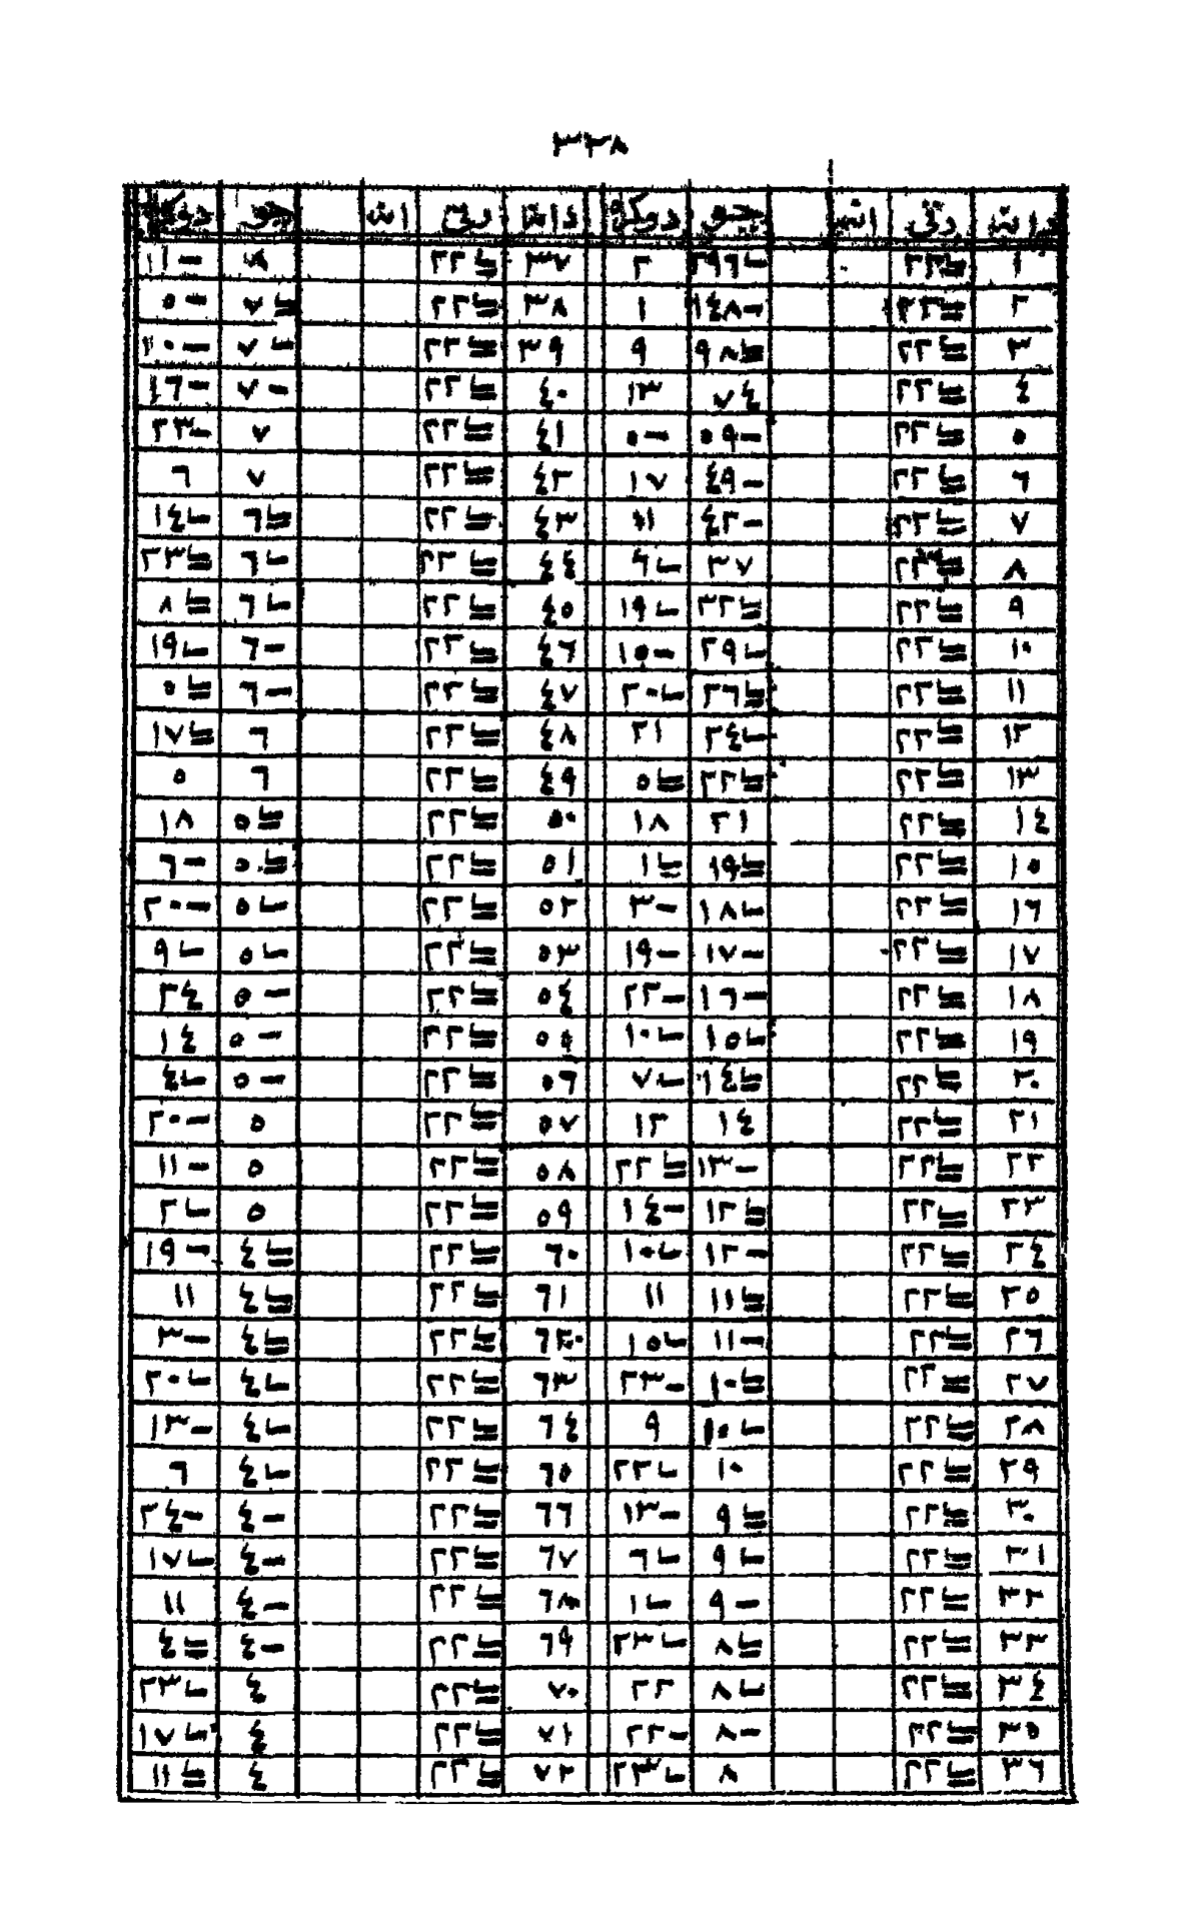 ٣٣٨
دانة رتي انه چو دوكره دانا رتي انه چو دوكره
١ ٢٢ ٢٩٦ ٢ ٣٧ ٢٢ ٨ -١١
٢ ٢٢ -١٤٨ ١ ٣٨ ٢٢ ٧ -٥
٣ ٢٢ ٩٨ ٩ ٣٩ ٢٢ ٧ -١٠
٤ ٢٢ ٧٤ ١٣ ٤٠ ٢٢ -٧ -١٦
٥ ٢٢ -٥٩ -٥ ٤١ ٢٢ ٧ -٢٣
٦ ٢٢ -٤٩ ١٧ ٤٢ ٢٢ ٧ ٦
٧ ٢٢ -٤٢ ١١ ٤٣ ٢٢ ٦ ١٤
٨ ٢٢ ٣٧ ٤ ٤٤ ٢٢ ٦ ٢٣
٩ ٢٢ ٣٢ ١٩ ٤٥ ٢٢ ٦ ٨
١٠ ٢٢ ٢٩ -١٥ ٤٦ ٢٢ -٦ ١٩
١١ ٢٢ ٢٦ ٢٠ ٤٧ ٢٢ -٦ ٥
١٢ ٢٢ ٢٤ ٢١ ٤٨ ٢٢ ٦ ١٧
١٣ ٢٢ ٢٢ ٥ ٤٩ ٢٢ ٦ ٥
١٤ ٢٢ ٢١ ١٨ ٥٠ ٢٢ ٥ ١٨
١٥ ٢٢ ١٩ ١ ٥١ ٢٢ ٥ -٦
١٦ ٢٢ ١٨ -٣ ٥٢ ٢٢ ٥ -٢٠
١٧ ٢٢ -١٧ -١٩ ٥٣ ٢٢ ٥ ٩
١٨ ٢٢ -١٦ -٢٢ ٥٤ ٢٢ -٥ ٢٤
١٩ ٢٢ ١٥ ١٠ ٥٥ ٢٢ -٥ ١٤
٢٠ ٢٢ ١٤ ٧ ٥٦ ٢٢ -٥ ٤
٢١ ٢٢ ١٤ ١٢ ٥٧ ٢٢ ٥ -٢٠
٢٢ ٢٢ -١٣ ٢٢ ٥٨ ٢٢ ٥ -١١
٢٣ ٢٢ ١٢ -١٤ ٥٩ ٢٢ ٥ ٢
٢٤ ٢٢ -١٢ ١٠ ٦٠ ٢٢ ٤ -١٩
٢٥ ٢٢ ١١ ١١ ٦١ ٢٢ ٤ ١١
٢٦ ٢٢ -١١ ١٥ ٦٢ ٢٢ ٤ -٣
٢٧ ٢٢ ١٠ -٢٣ ٦٣ ٢٢ ٤ ٢٠
٢٨ ٢٢ ١٠ ٩ ٦٤ ٢٢ ٤ -١٣
٢٩ ٢٢ ١٠ ٢٢ ٦٥ ٢٢ ٤ ٦
٣٠ ٢٢ ٩ -١٣ ٦٦ ٢٢ -٤ -٢٤
٣١ ٢٢ ٩ ٦ ٦٧ ٢٢ -٤ ١٧
٣٢ ٢٢ -٩ ١ ٦٨ ٢٢ -٤ ١١
٣٣ ٢٢ ٨ ٢٣ ٦٩ ٢٢ -٤ ٤
٣٤ ٢٢ ٨ ٢٢ ٧٠ ٢٢ ٤ ٢٣
٣٥ ٢٢ -٨ -٢٢ ٧١ ٢٢ ٤ ١٧
٣٦ ٢٢ ٨ ٢٣ ٧٢ ٢٢ ٤ ١١